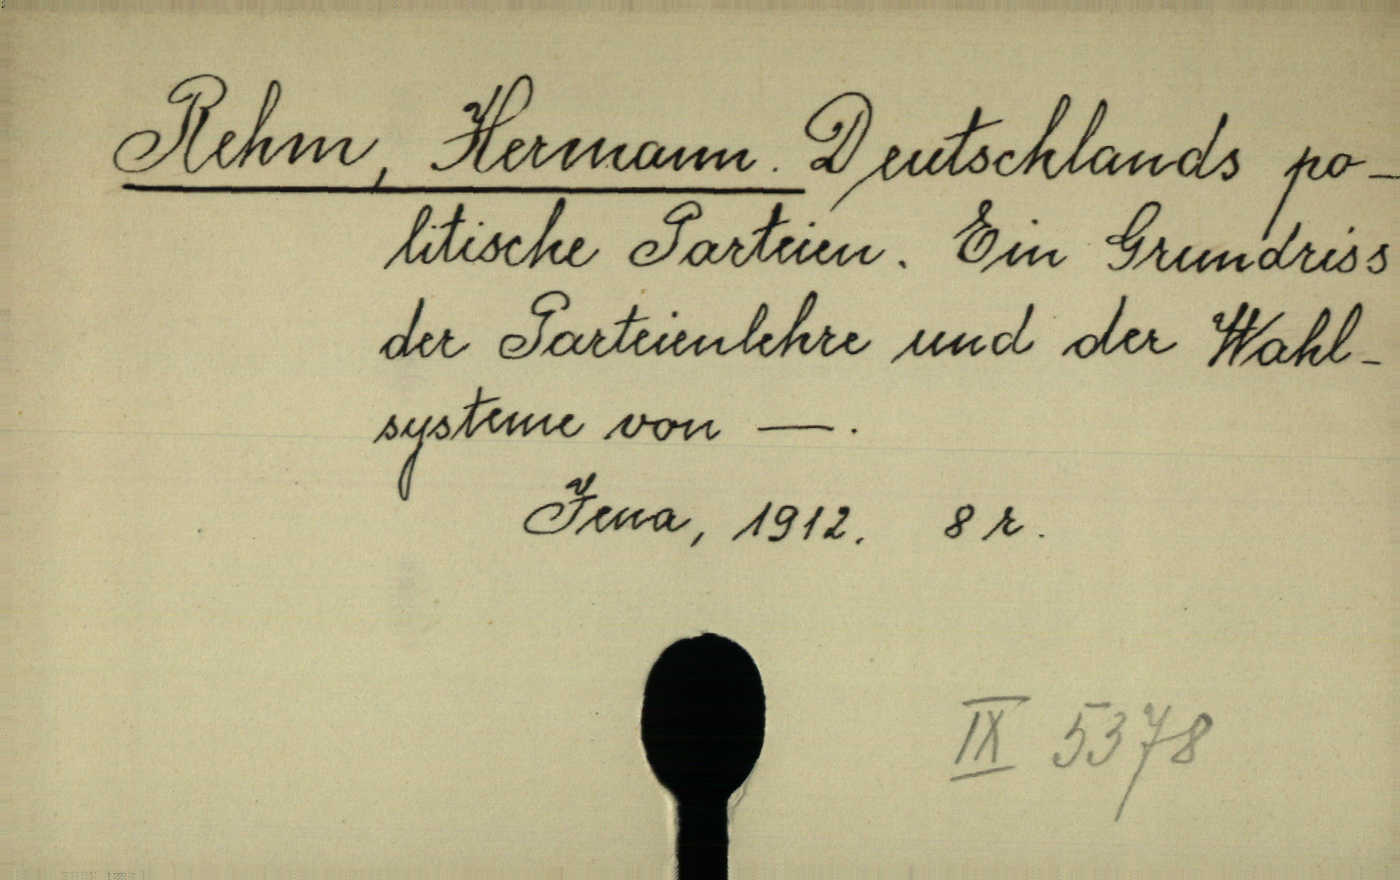 Rehm, Hermann. Deutschlands po-
litische Parteien. Ein Grundriss
der Parteienlehre und der Wahl-
systeme von —.
Jena, 1912. 8 r.
IX 5378